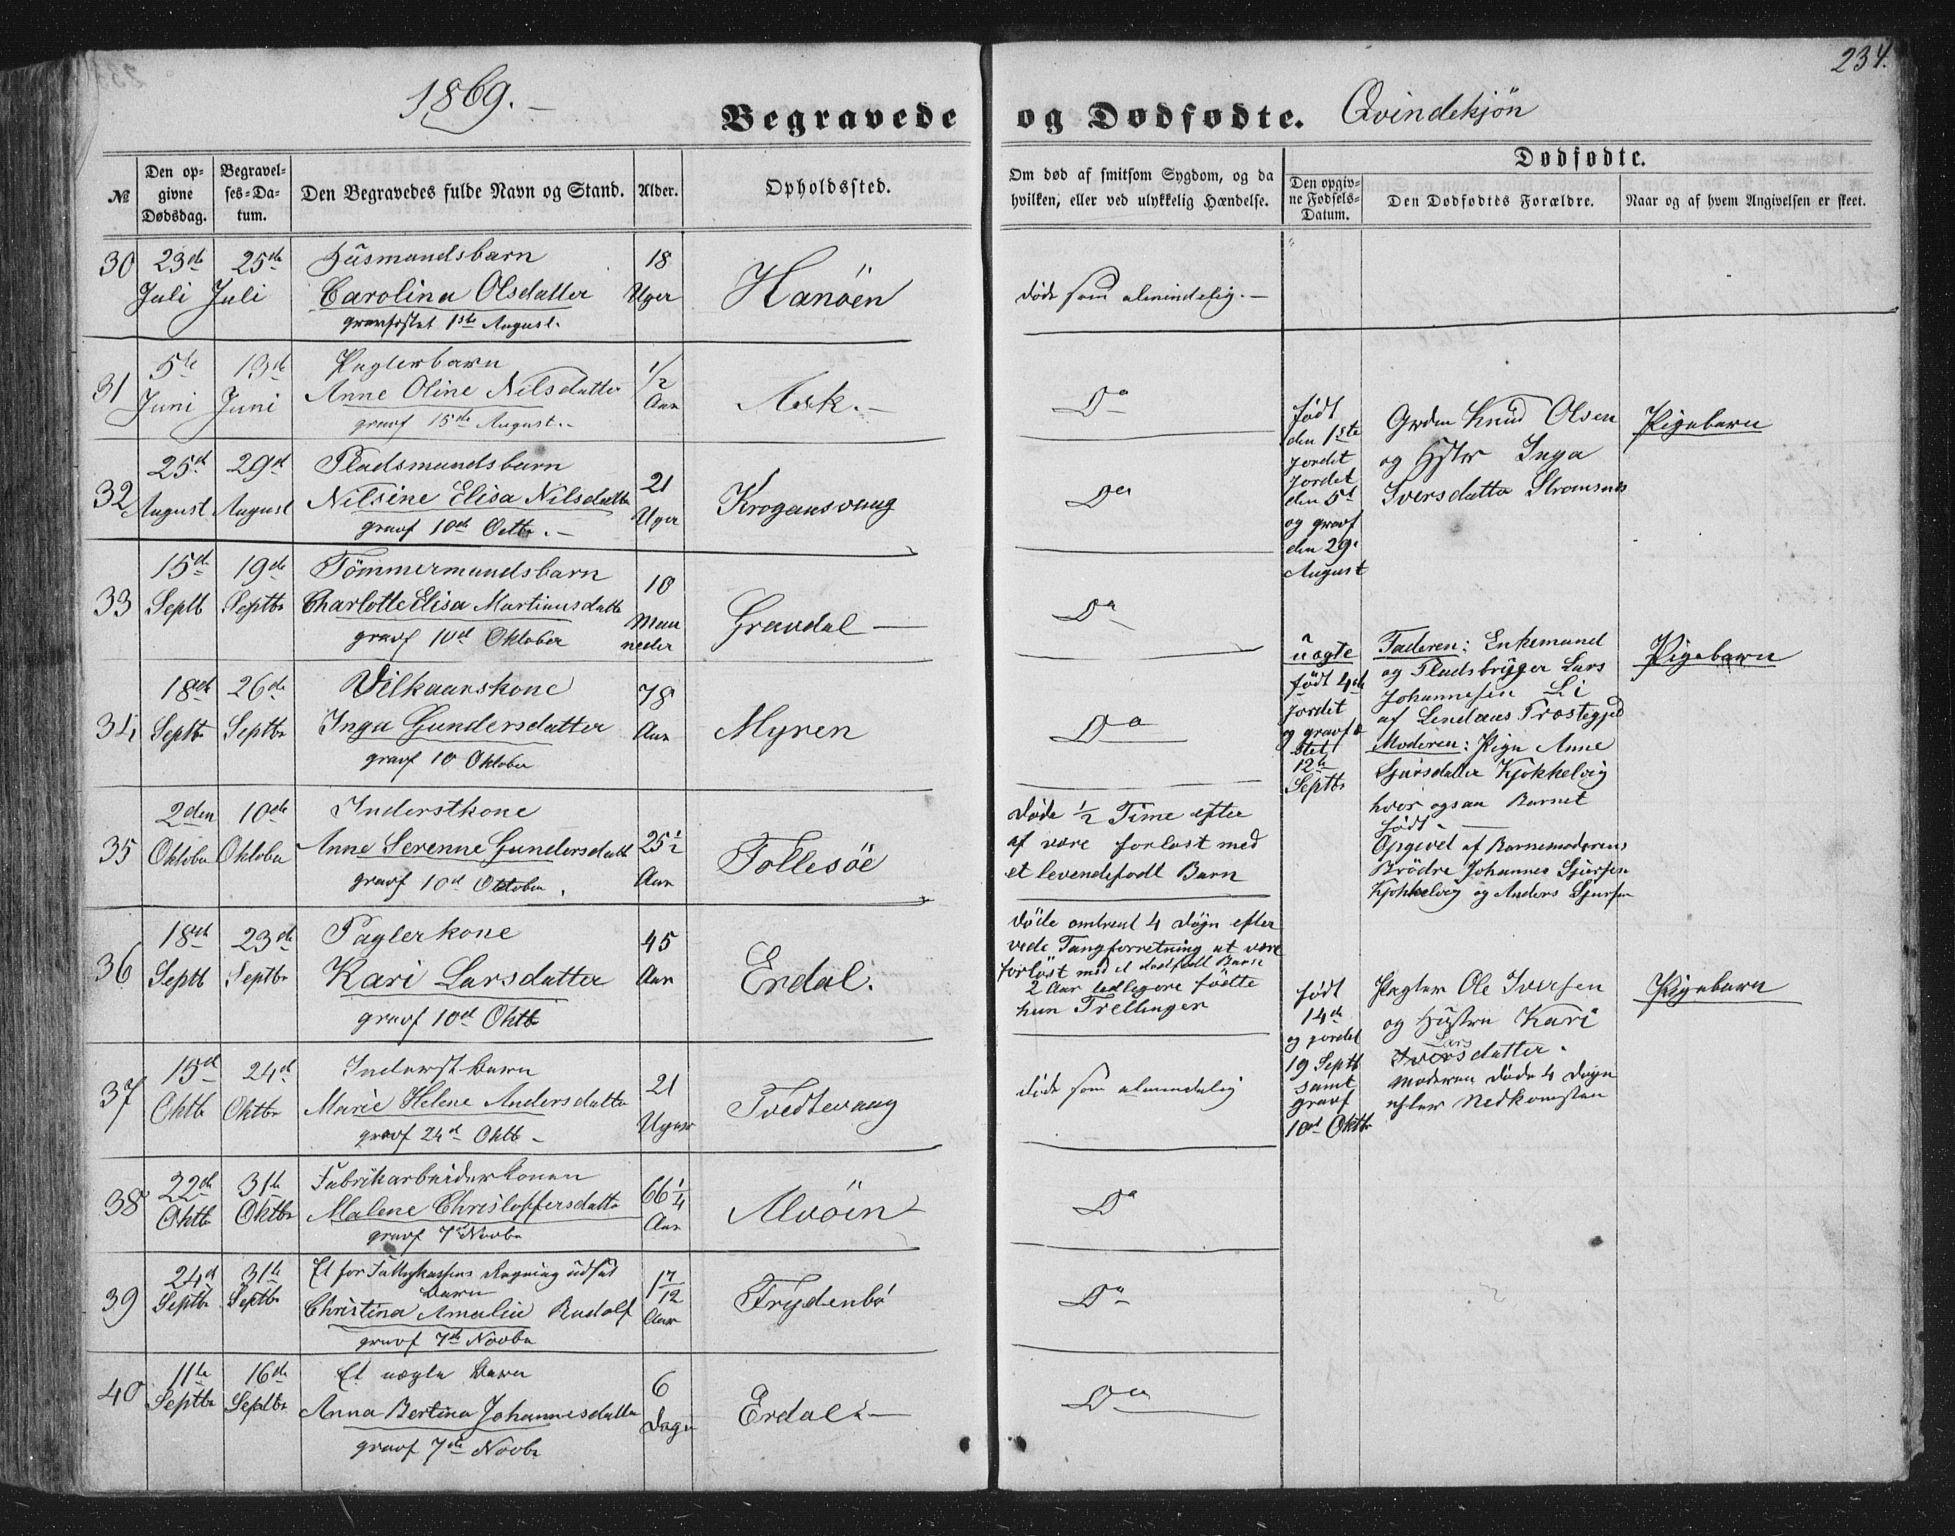 234.
1869.-
Begravede og Dødfødte. Qvindekjön
№
Den opgivne Dødsdag.
Begravelses-Datum.
Den Begravedes fulde Navn og Stand.
Alder.
Opholdssted.
Om død af smitsom Sygdom, og da hvilken, eller ved ulykkelig Hændelse.
Dødfødte.
Den opgivne Fødsels-Datum.
Den Dødfødtes Forældre.
Naar og af hvem Angivelsen er skeet.
30 23de Juli 25de Juli
Husmandsbarn
Carolina Olsdatter
gravfæstet 1ste August.
18 Uger
Hanöen
døde som almindelig.-
31 5te Juni 13de Juni
Pagterbarn
Anne Oline Nilsdatter
gravf 15de August.-
1/2 Aar
Ask.-
Do
32 25de August 29de August
Pladsmandsbarn
Nilsine Elisa Nilsdatter
gravf 10de Octbr.-
21 Uger
Krogansvaag
Do
33 15de Septb 19de Septbr
Tömmermandsbarn
Charlotte Elisa Martinusdatter
gravf 10de Oktober
10 Maaneder
Gravdal
Do
34 18de Septbr 26de Septbr
Vilkaarskone
Inga Gundersdatter
gravf 10 Oktober
78 Aar
Myren
Do
35 2den Oktober 10de Oktober
Inderstkone
Anne Serenne Gundersdatter
gravf 10de October.
25 1/2 Aar
Follesöe
Døde 1/2 Time efter
at være forløst med
et levendefødt Barn
36 18de Septb 23de Septbr
Pagterkone
Kari Larsdatter
gravf 10de Oktb
45 Aar
Erdal.
Døde omtrent 4 Døgn efter
vede Tangforretning at være
forløst med et dødfødt Barn
2 Aar tidligere födte
hun Trellinger
37 15de Oktb 24de Oktbr
Inderstbarn
Marie Helene Andersdatter
gravf 24de Oktb-
21 Uger
Tvedtevaag
døde som almindelig
38 22de Oktb 31te Oktbr
Fabrikarbeiderkonen
Malene Christoffersdatter
gravf 7de Novbr
66 1/4 Aar
Alvöen
Do
39 24de Septbr 31te Septbr
Et for Fattigkassens Regning udsat
Barn
Christina Amalie Rudolf
gravf 7de Novbr
1 7/12 Aar
Frydenbö
Do
40 11te Septbr 16de Septbr
Et uægte Barn
Anna Bertina Johannesdatter
gravf 7de Novbr
6 Dage
Erdal.-
Do
født
den 1ste
jordet
jordet
den 5te
og gravf
den 29.
August
Grdm Knud Olsen
og Hstr Inga
Iversdatter Stromsnes
Pigebarn
uægte
født 4de
jordet
og gravfæ
stet
12te
Septbr
Faderen: Enkemand
og Pladsbruger Lars
Johannesen Li
af Lindaas Præstegjed
Moderen: Pige Anne
Sjursdatter Kjøkkelvig
hvor ogsaa Barnet
født-
Opgivet af Barnemoderens
Brödre Johannes Sjursen
Kjøkkelvig og Anders Sjursen
Pigebarn
født
14de
og jordet
19 Septb
samt
gravf
10de Oktbr
Pagter Ole Iversen
og Hustru Kari
Lars
Iversdatter.
Moderen døde 4 Døgn
efter Nedkomsten
Pigebarn